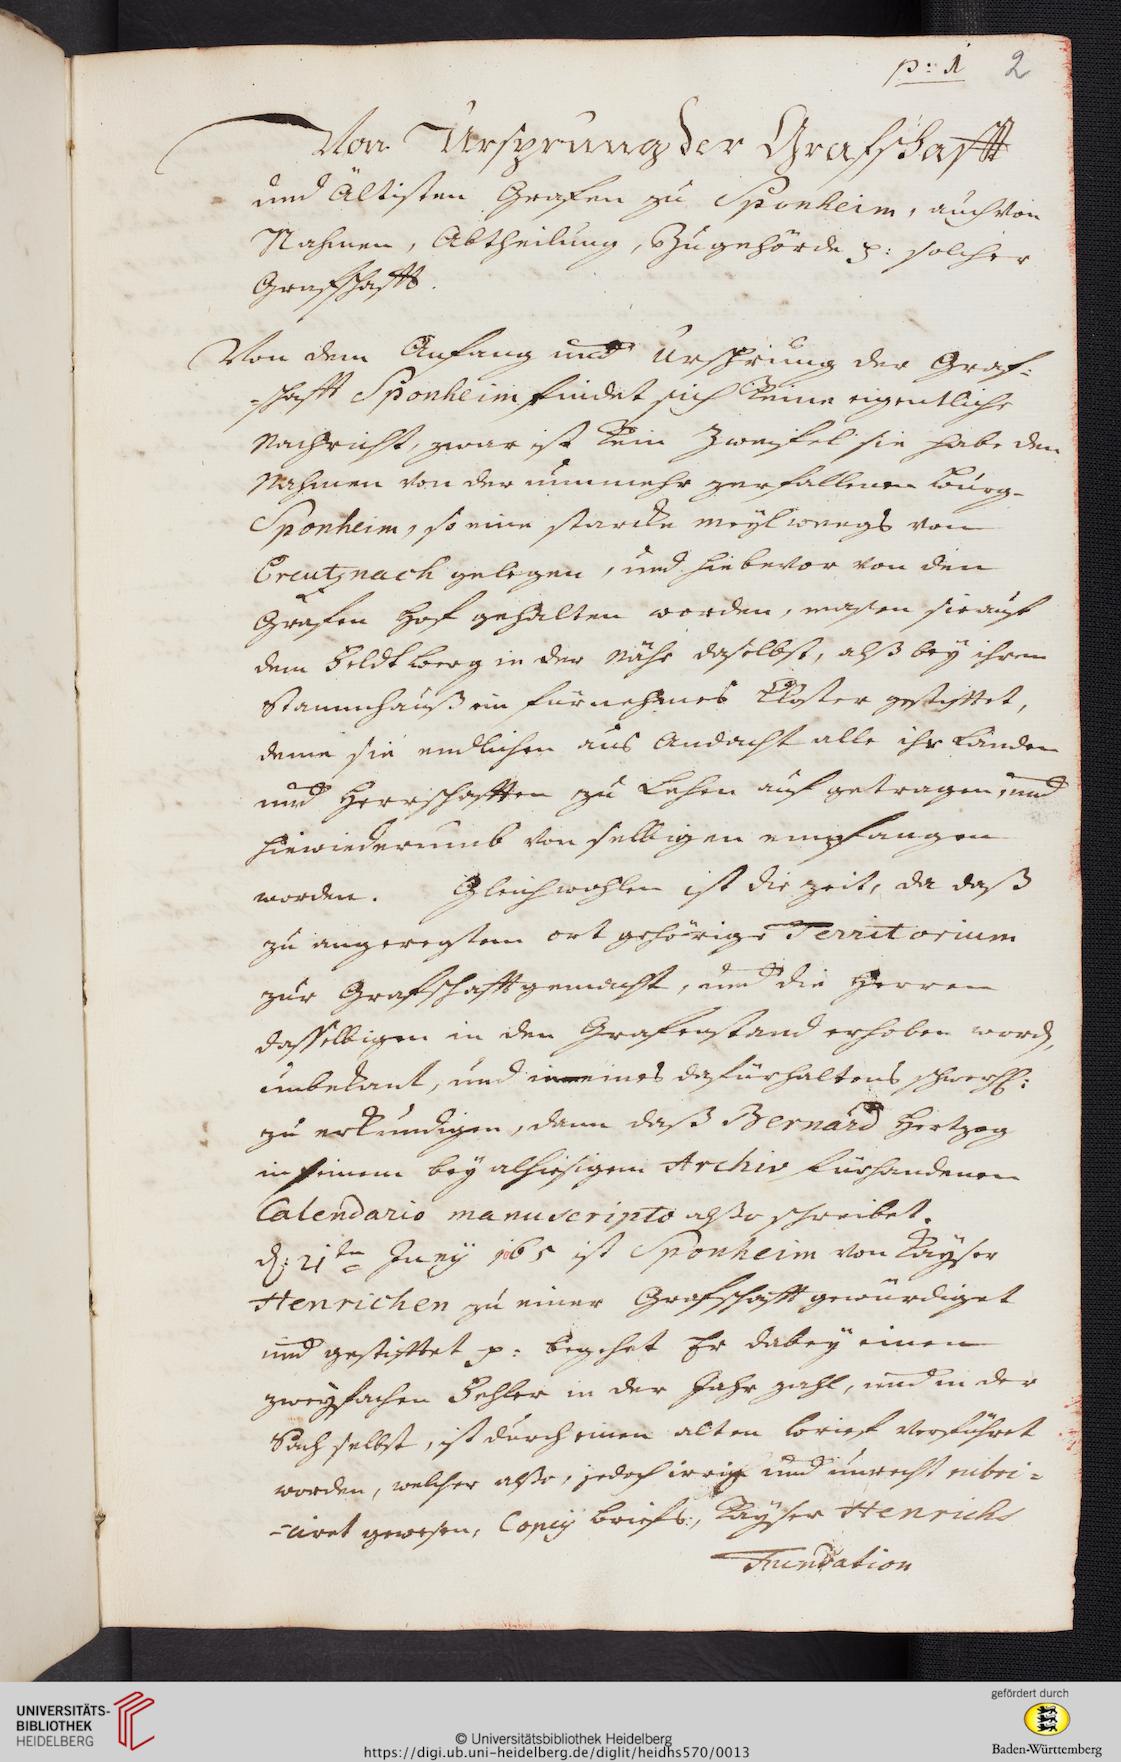 p: 1 2
Von Ursprung der Grafschafft
und Ältisten Grafen zu Sponheim, auch von
Nahmen, Abtheilung, Zugehörde p: solcher
Grafschafft.
Von dem Anfang und Ursprung der Graf-
-schafft Sponheim findet sich keine eigentliche
Nachricht, zwar ist kein Zweifel sie habe den
Nahmen von der nunmehr zerfallenen Burg-
Sponheim, so eine starcke meyl weegs von
Creutznach gelegen, und hiebevor von den
Grafen Hof gehalten worden, masen sie auf
dem Feldtberg in der Nähe daselbst, alß bey ihrem
Stammhauß ein fürnehmes Kloster gestifftet,
deme sie endlichen aus Andacht alle ihr Landen
und Herrschafften zu Lehen auf getragen, und
hinwiederumb von selbigen empfangen
worden. Gleichwohlen ist die Zeit, da daß
zu angeregtem ort gehörige Territorium
zur Grafschafft gemacht, und die Herren
dasselbigen in den Grafenstand erhoben word,
unbekant, und meines dafürhaltens
zu erkundigen, dann daß Bernard Hertzog
in seinem bey alhiesigem Archiv fürhandenen
Calendario manuscripto alßo schreibet.
d: 21ten Juny 1065 ist Sponheim von Kayser
Henrichen zu einer Grafschafft gewürdiget
und gestifftet p: begehet Er dabey einen
zweyfachen Fehler in der Jahr zahl, und in der
Sach selbst, ist durch einen alten brief verführet
worden, welcher alßo, jedoch irrig und unrecht rubri-
-ciret gewesen, Copey briefs, Kayser Henrichs
Fundation
UNIVERSITÄTS-
BIBLIOTHEK
HEIDELBERG
© Universitätsbibliothek Heidelberg
https://digi.ub.uni-heidelberg.de/diglit/heidhs570/0013
gefördert durch
Baden-Württemberg